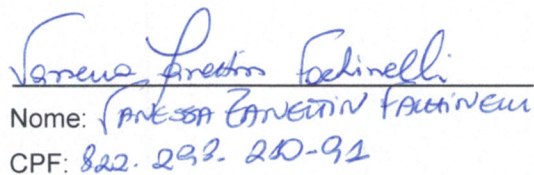 Vanessa Zanettin Fachinelli
Nome: VANESSA ZANETTIN FACHINELLI
CPF: 822.293.210-91